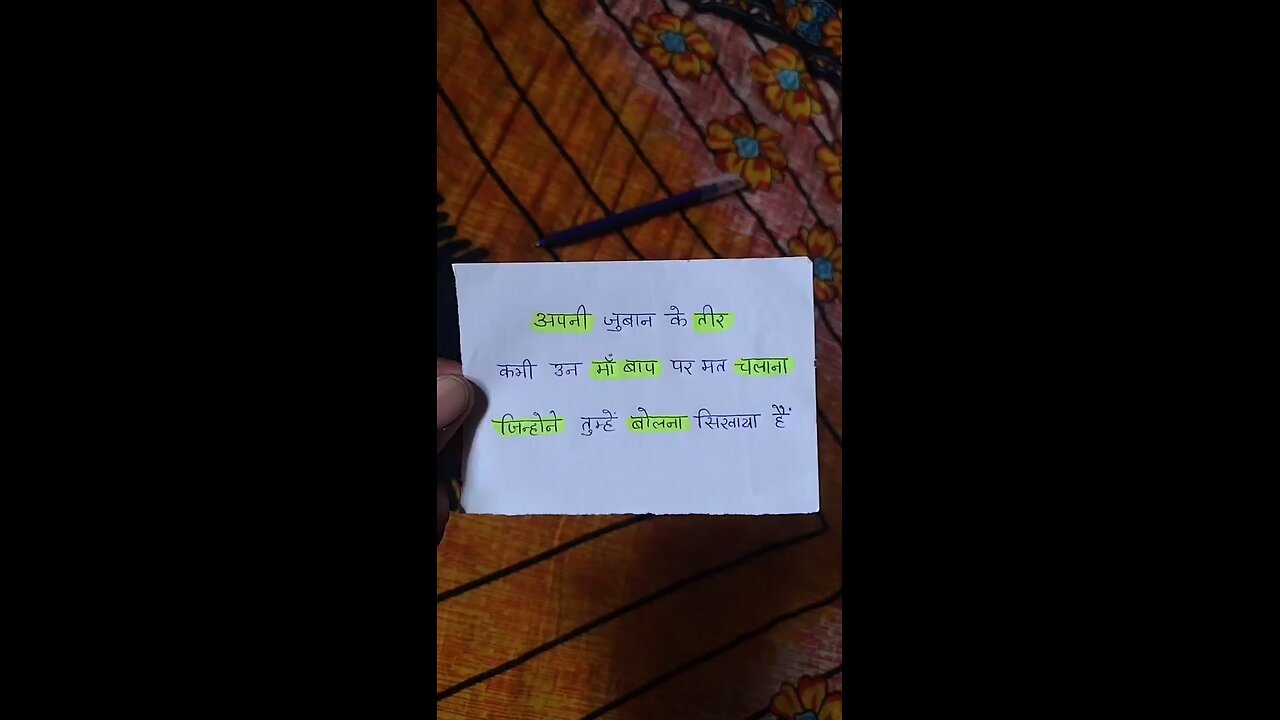 अपनी जुबान के तीर
कभी उन माँ बाप पर मत चलाना
जिन्होने तुम्हें बोलना सिखाया हैं